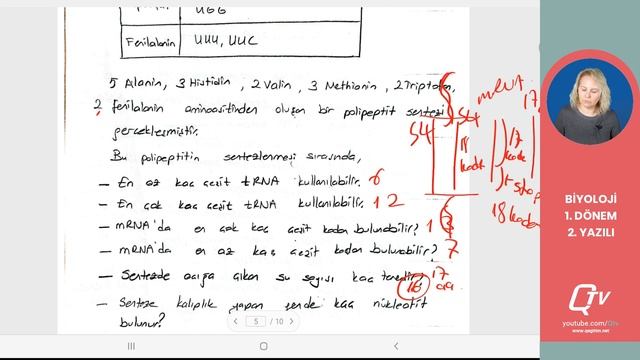 UGG
Fenilalanin UUU, UUC
5 Alanin, 3 Histidin, 2 Valin, 3 Methionin, 2 Triptofan,
2 fenilalanin aminoasitinden oluşan bir polipeptit sentezi
gerçekleşmiştir.
Bu polipeptitin sentezlenmesi sırasında,
— En az kaç çeşit tRNA kullanılabilir. 6
— En çok kaç çeşit tRNA kullanılabilir. 12
— mRNA'da en çok kaç çeşit kodon bulunabilir? 13
— mRNA'da en az kaç çeşit kodon bulunabilir? 7
— Sentezde açığa çıkan su sayısı kaç tanedir? 16
— Senteze kalıplık yapan gende kaç nükleotit
bulunur?
mRNA
17
54
54
18 kodon
17 kodon
1 stop
18 kodon
17 a.a.
5 / 10
BİYOLOJİ
1. DÖNEM
2. YAZILI
QTV
youtube.com/Qtv
www.qegitim.net